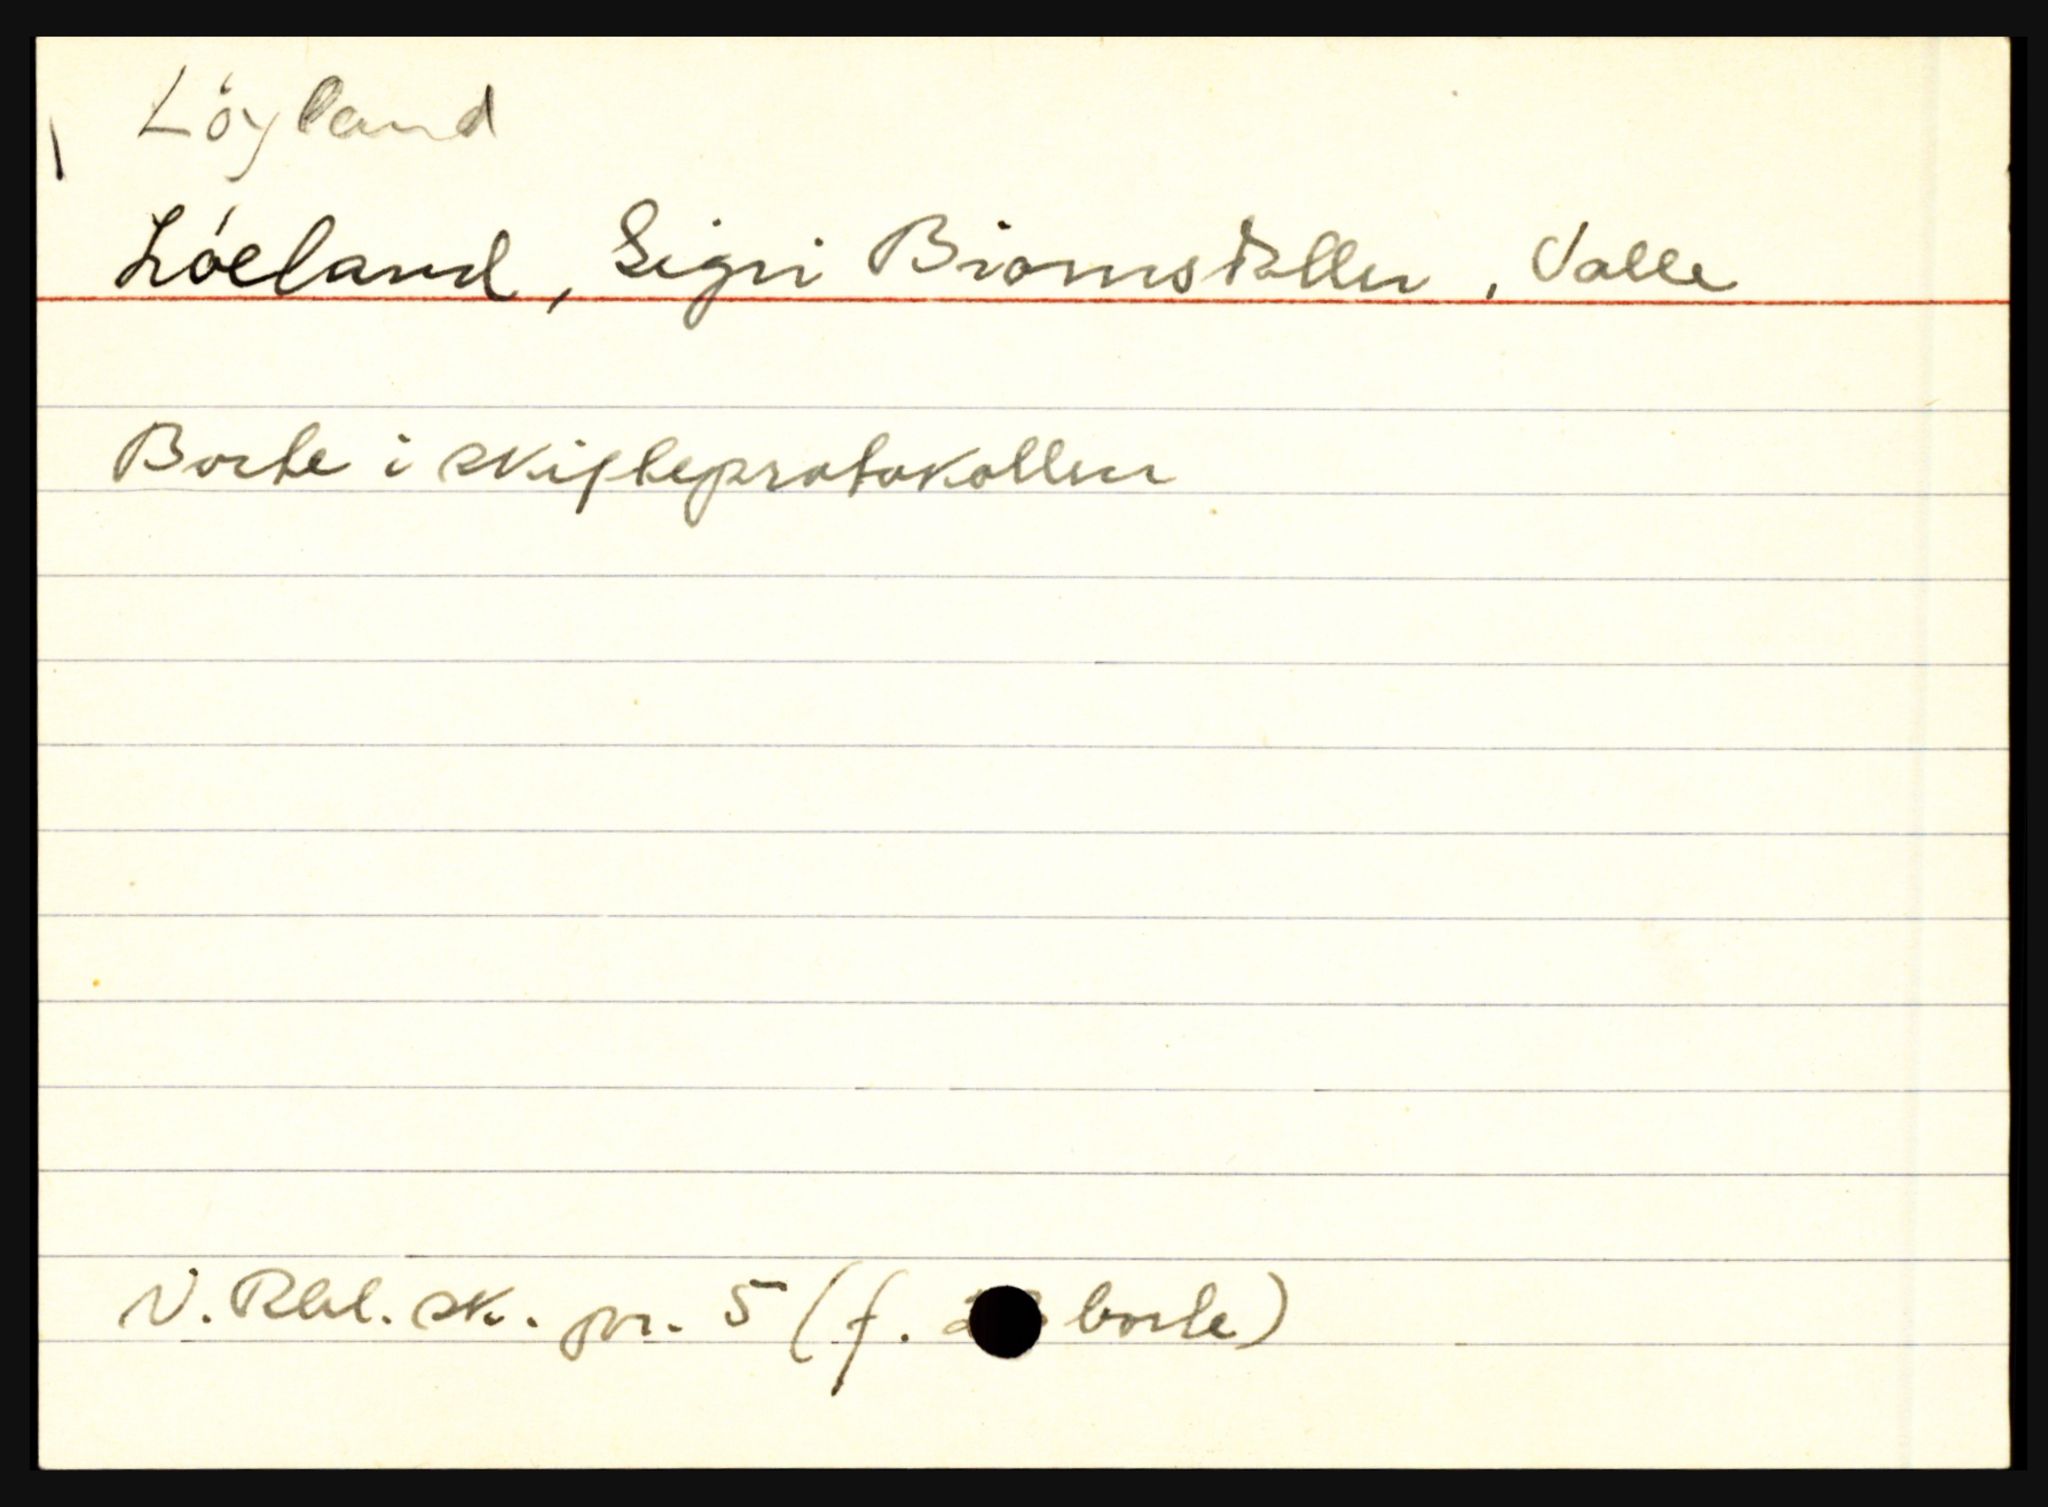 Löyland
Lóeland, Sigri Biornsdatter, Valle
Borte i skifteprotokollen
N. Rbl. sk. pr. 5 (f. borte)